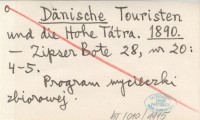 Dänische Touristen
und die Hohe Tátra. 1890.
— Zipser Bote 28, nr 20:
4-5.
Program wycieczki
zbiorowej.